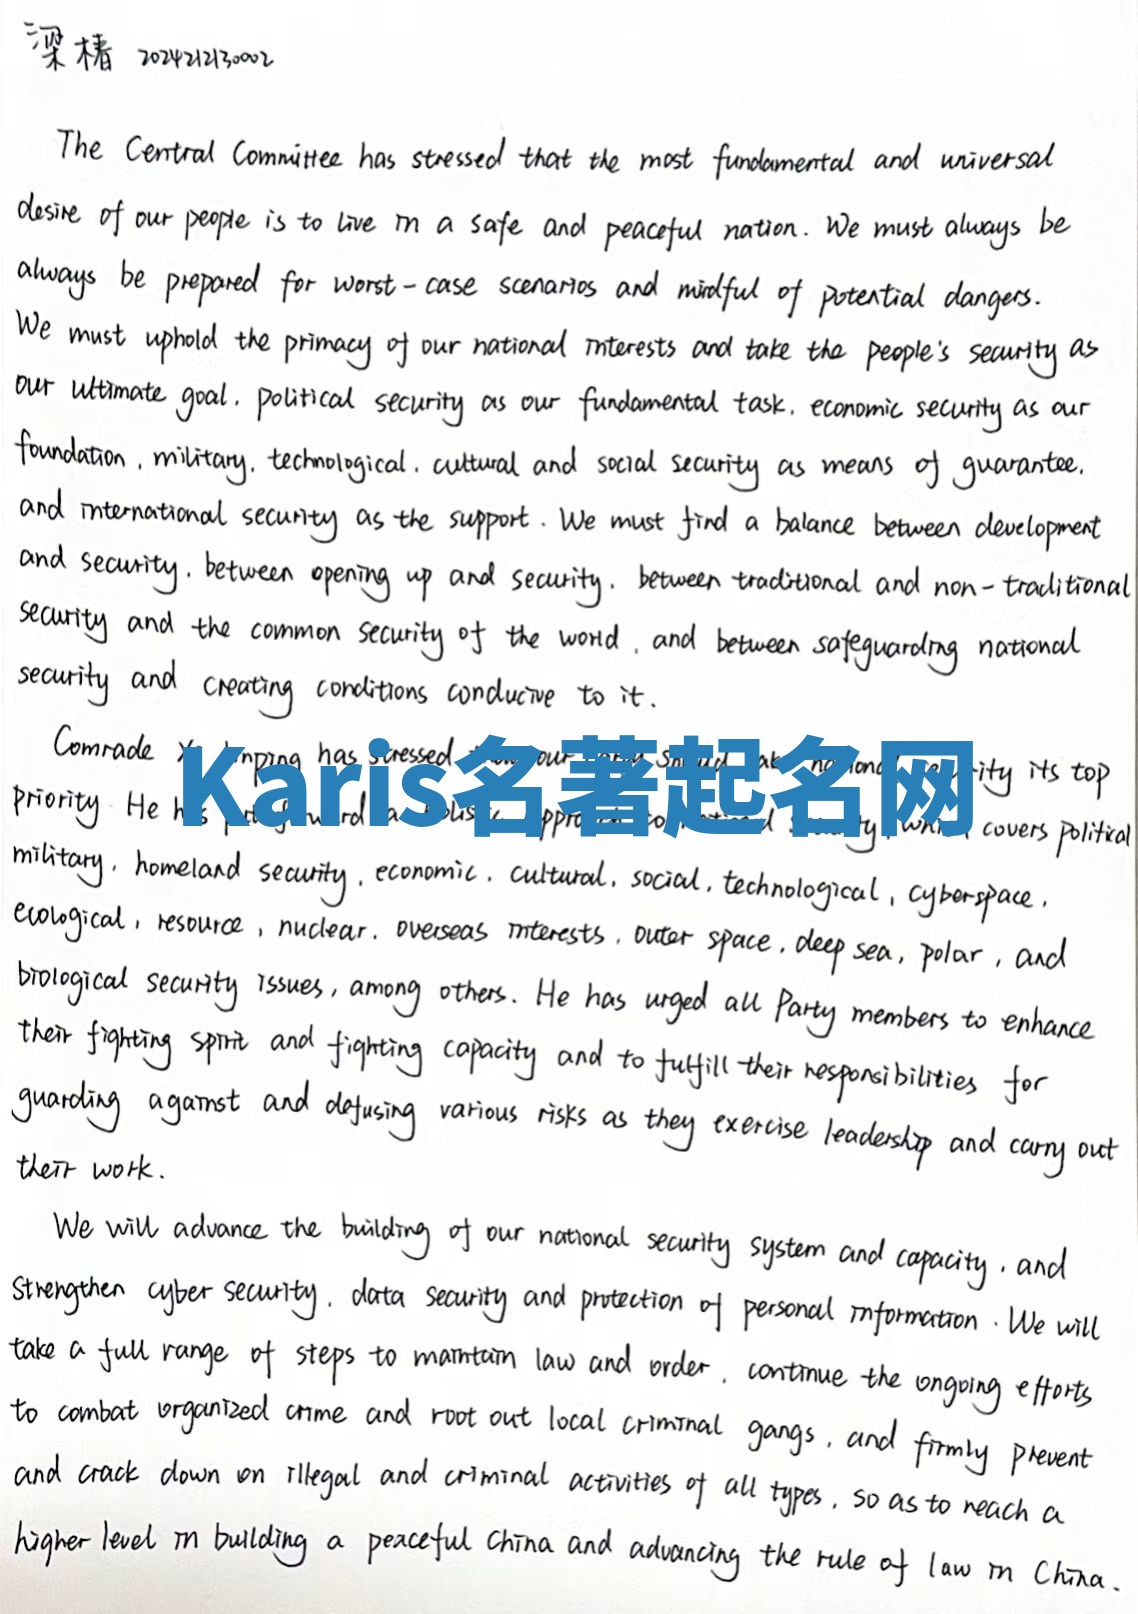 梁椿 2024212130002
The Central Committee has stressed that the most fundamental and universal
desire of our people is to live in a safe and peaceful nation. We must always be
always be prepared for worst-case scenarios and mindful of potential dangers.
We must uphold the primacy of our national interests and take the people's security as
our ultimate goal, political security as our fundamental task, economic security as our
foundation, military, technological, cultural and social security as means of guarantee,
and international security as the support. We must find a balance between development
and security, between opening up and security, between traditional and non-traditional
security and the common security of the world, and between safeguarding national
security and creating conditions conducive to it.
Comrade has stressed our its top
Karis名著起名网
priority. He covers political
military, homeland security, economic, cultural, social, technological, cyberspace,
ecological, resource, nuclear, overseas interests, outer space, deep sea, polar, and
biological security issues, among others. He has urged all Party members to enhance
their fighting spirit and fighting capacity and to fulfill their responsibilities for
guarding against and defusing various risks as they exercise leadership and carry out
their work.
We will advance the building of our national security system and capacity, and
strengthen cyber security, data security and protection of personal information. We will
take a full range of steps to maintain law and order, continue the ongoing efforts
to combat organized crime and root out local criminal gangs, and firmly prevent
and crack down on illegal and criminal activities of all types, so as to reach a
higher level in building a peaceful China and advancing the rule of law in China.